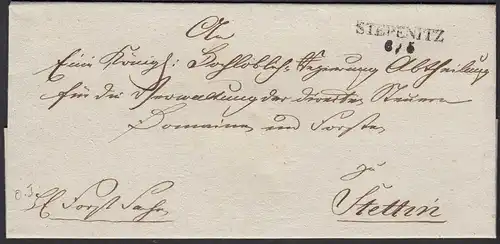 STEPENITZ
6/5
An
Eine Königl: Hochlöbliche Regierung Abtheilung
für die Verwaltung der direkten Steuern
Domainen und Forsten
zu
Stettin
Forst Sache